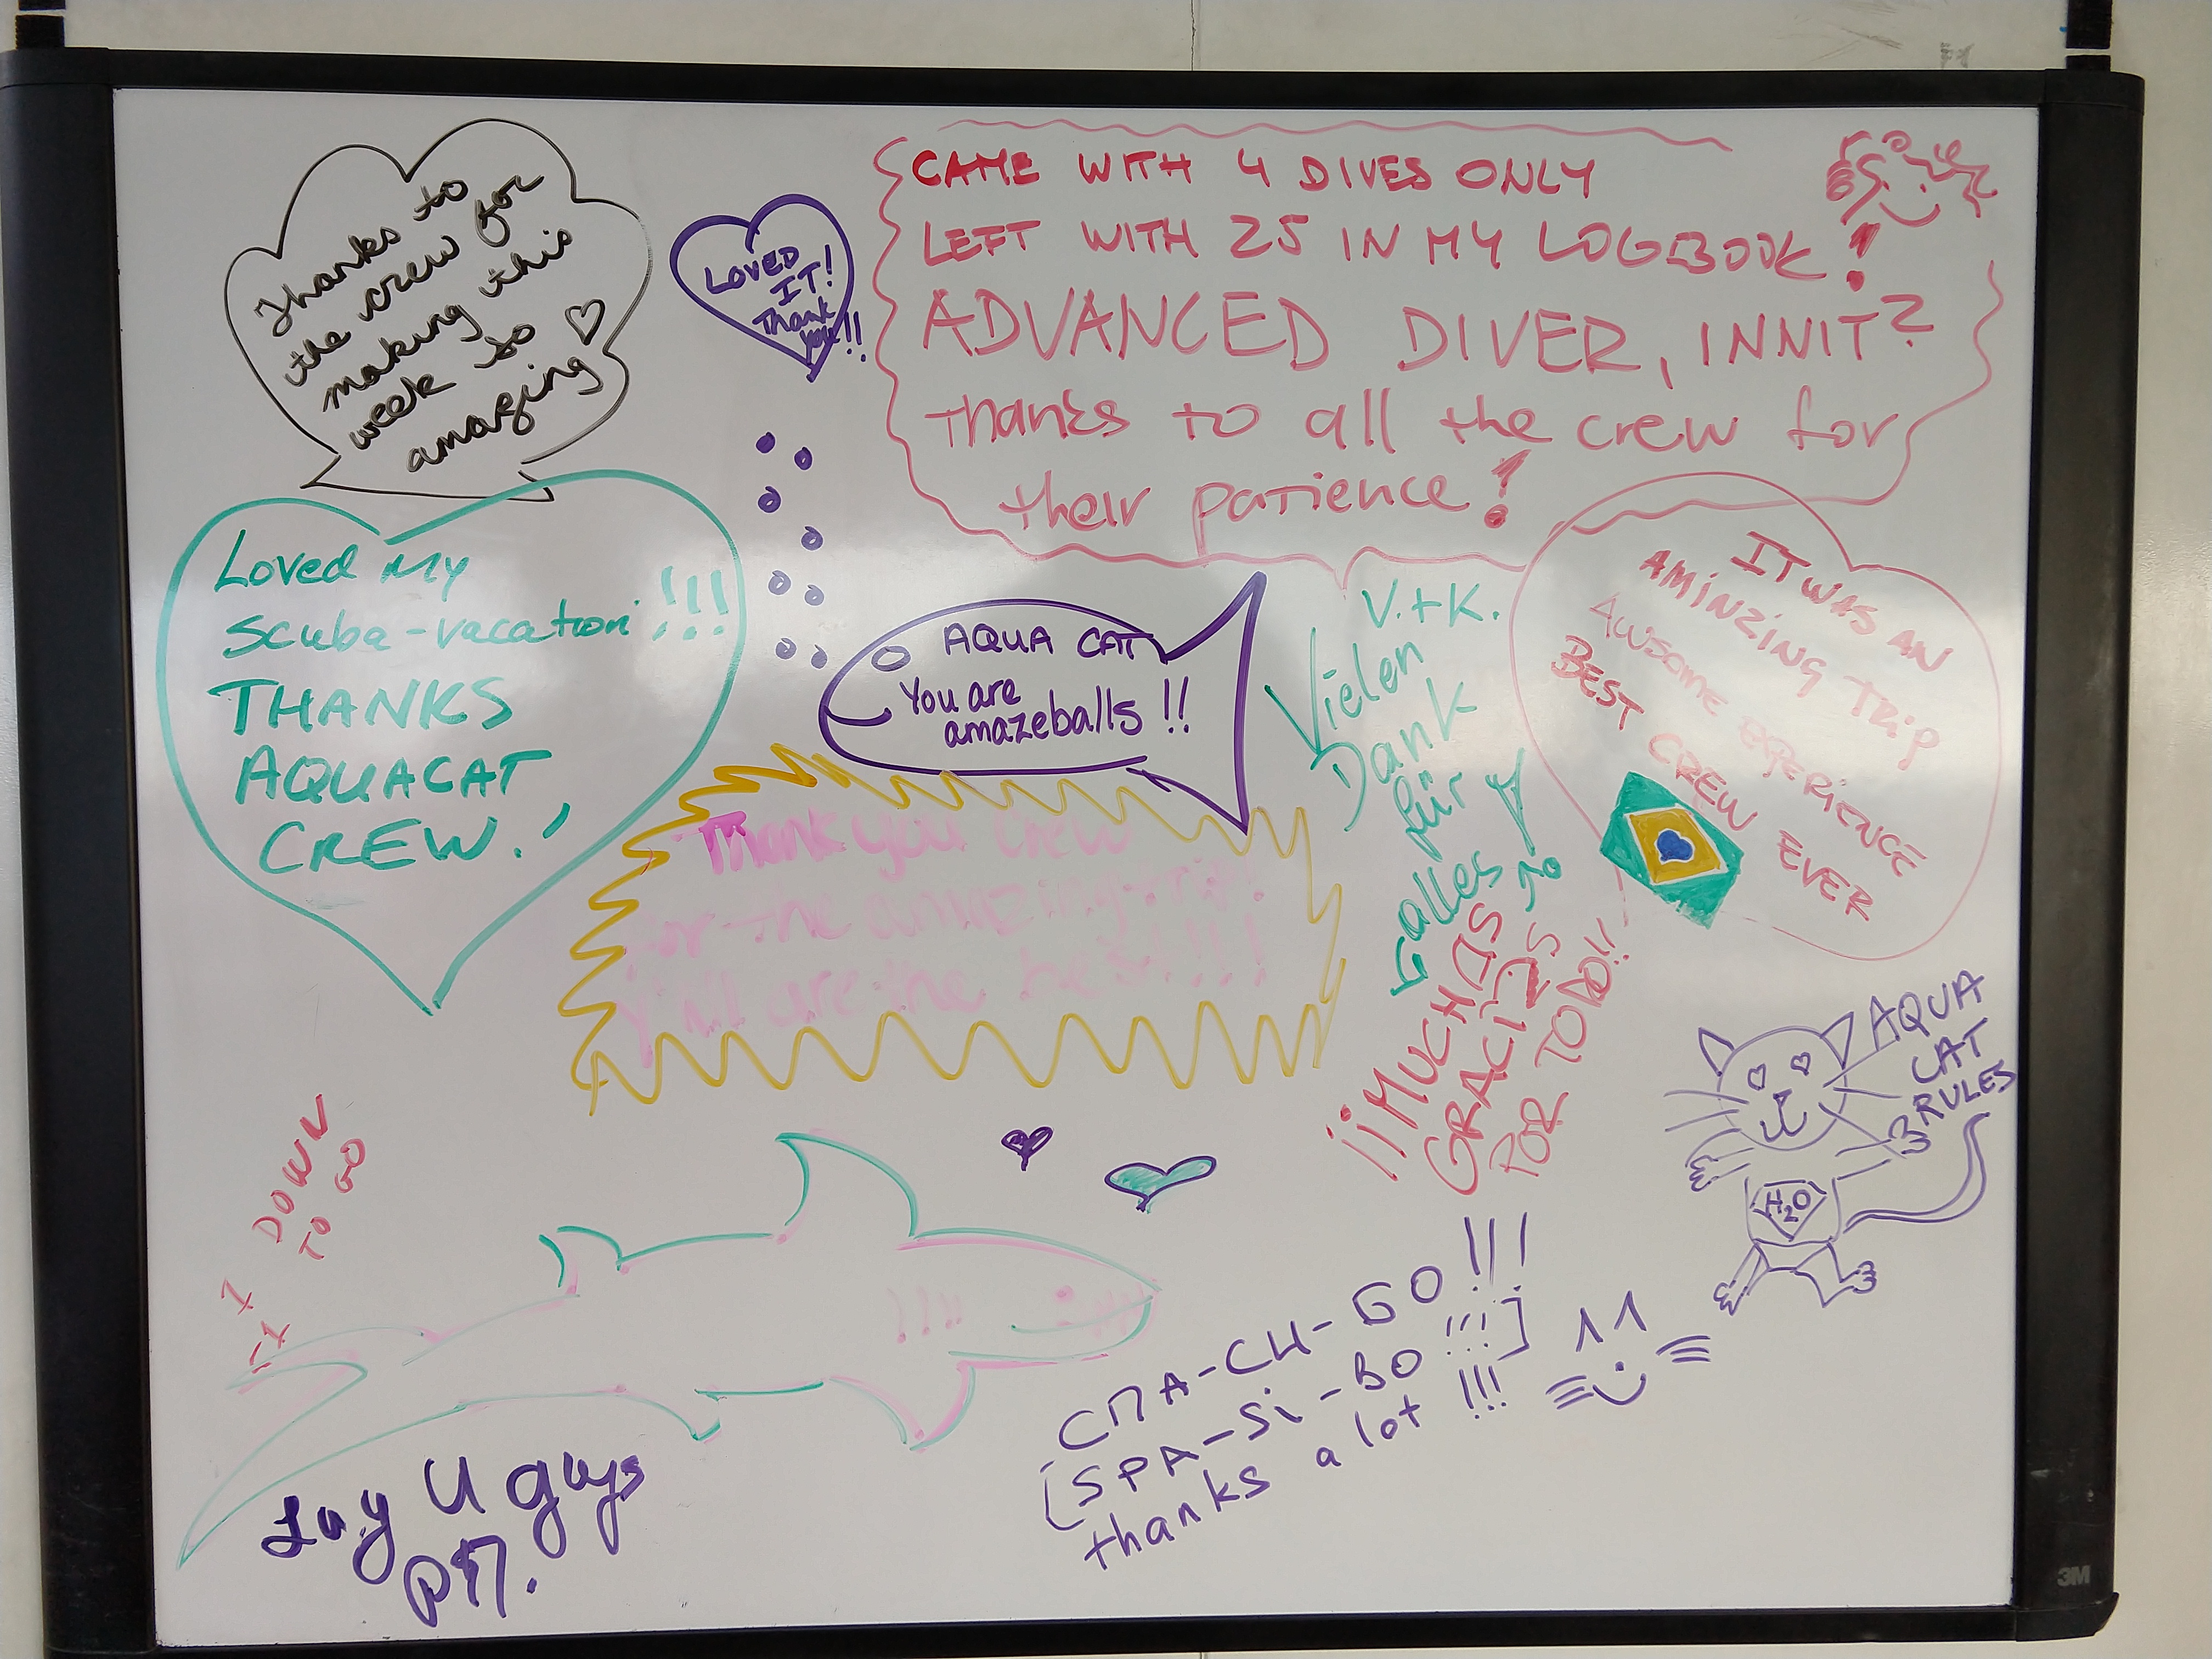 Thanks to
the crew for
making this
week so
amazing
LOVED
IT!
Thank
you!!
CAME WITH 4 DIVES ONLY
LEFT WITH 25 IN MY LOGBOOK!
ADVANCED DIVER, INNIT?
thanks to all the crew for
their patience!
Loved my
scuba-vacation!!!
THANKS
AQUACAT
CREW!
AQUA CAT
You are
amazeballs!!
V.+K.
Vielen
Dank
für
alles
IT WAS AN
AMINZING TRIP
AWSOME EXPERIENCE
BEST CREW EVER
Thank you crew
for the amazing trip!
Y'all are the best!!!!
¡¡MUCHAS
GRACIAS
POR TODO!!
AQUA
CAT
RULES
H2O
DOWN
TO GO
СПА-СИ-БО!!!
[SPA-Si-BO!!!]
thanks a lot!!!
U guys
3M